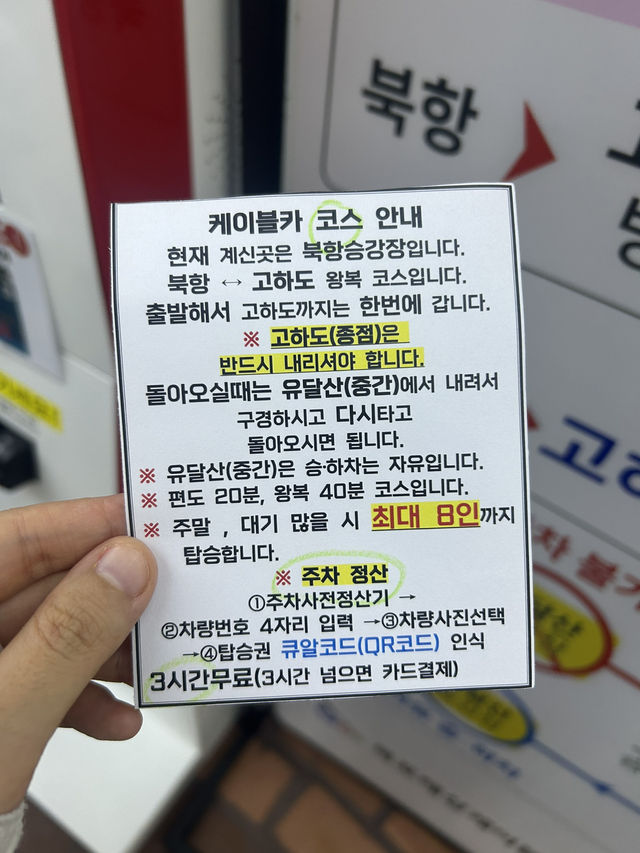 북항
케이블카 코스 안내
현재 계신곳은 북항승강장입니다.
북항 ↔ 고하도 왕복 코스입니다.
출발해서 고하도까지는 한번에 갑니다.
※ 고하도(종점)은
반드시 내리셔야 합니다.
돌아오실때는 유달산(중간)에서 내려서
구경하시고 다시타고
돌아오시면 됩니다.
※ 유달산(중간)은 승·하차는 자유입니다.
※ 편도 20분, 왕복 40분 코스입니다.
※ 주말 , 대기 많을 시 최대 8인까지
탑승합니다.
※ 주차 정산
①주차사전정산기 →
②차량번호 4자리 입력 →③차량사진선택
→④탑승권 큐알코드(QR코드) 인식
3시간무료(3시간 넘으면 카드결제)